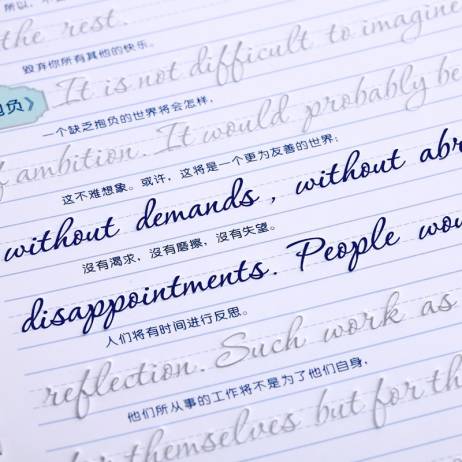 所以，
the rest.
毁弃你所有其他的快乐。
It is not difficult to imagine
抱负》
一个缺乏抱负的世界将会怎样，
of ambition. It would probably be
这不难想象。或许，这将是一个更为友善的世界：
without demands, without abr
沒有渴求，沒有磨擦，沒有失望。
disappointments. People wou
人们将有时间进行反思。
reflection. Such work as
他们所从事的工作将不是为了他们自身，
themselves but for th